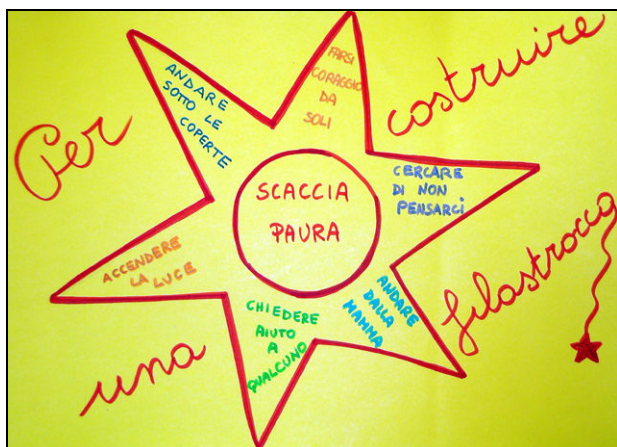 Per
costruire
una
filastrocca
SCACCIA
PAURA
ANDARE
SOTTO LE
COPERTE
FARSI
CORAGGIO
DA
SOLI
CERCARE
DI NON
PENSARCI
ANDARE
DALLA
MAMMA
CHIEDERE
AIUTO
A
QUALCUNO
ACCENDERE
LA LUCE